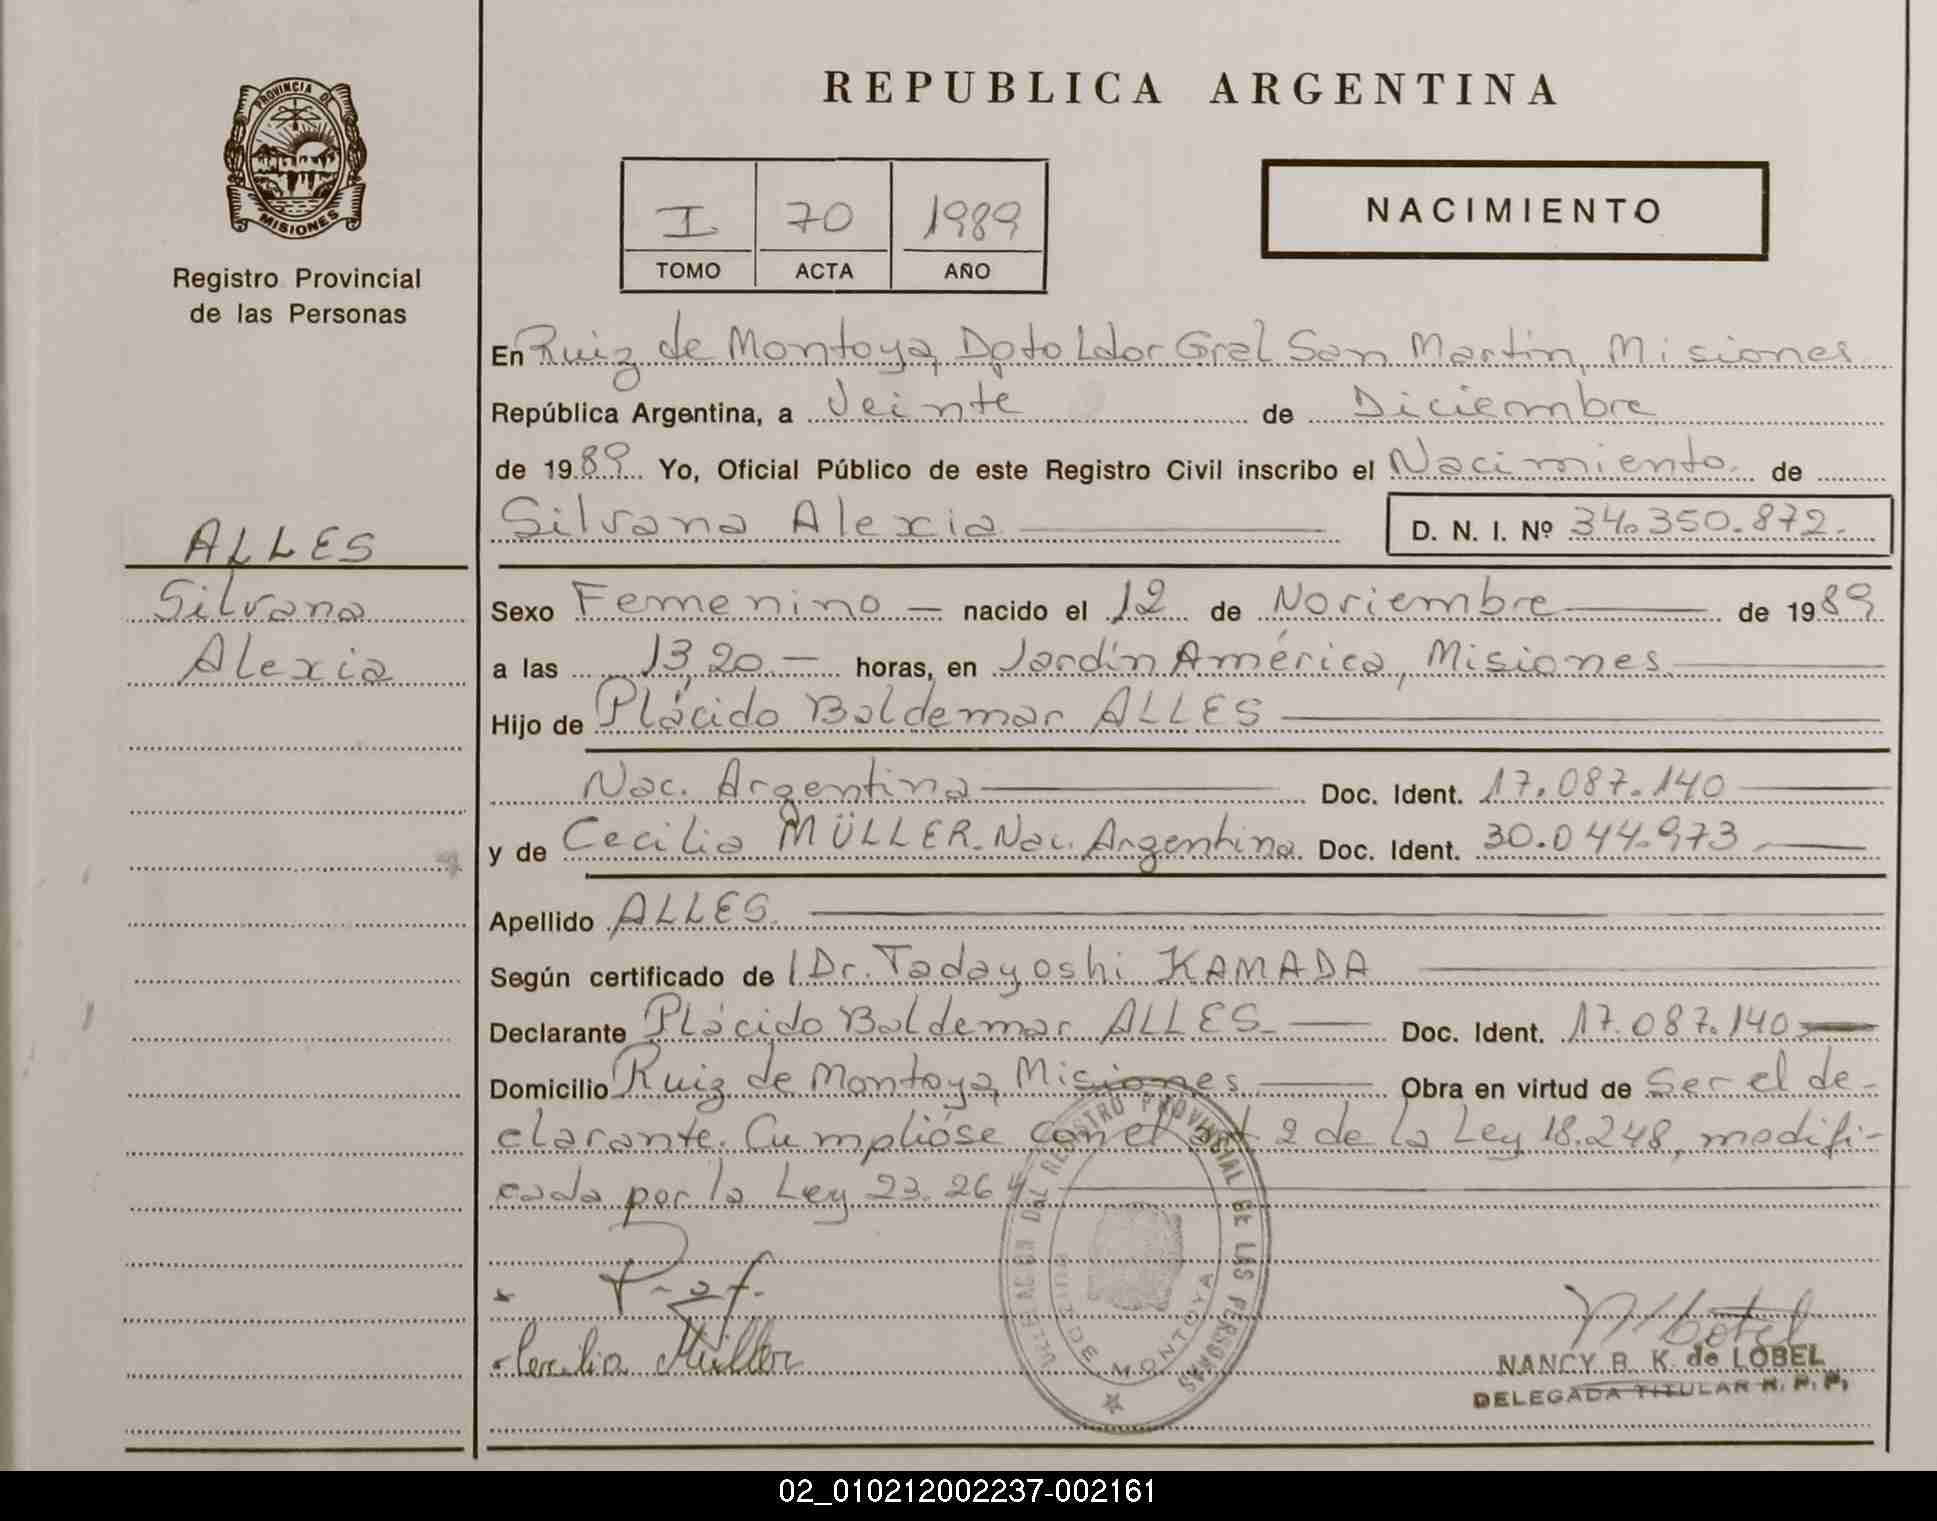 REPUBLICA ARGENTINA
PROVINCIA DE
MISIONES
Registro Provincial
de las Personas
I 70 1989
TOMO ACTA AÑO
NACIMIENTO
En Ruiz de Montoya, Dpto Ldor Gral San Martín, Misiones
República Argentina, a Veinte de Diciembre
de 1989 Yo, Oficial Público de este Registro Civil inscribo el Nacimiento de
Silvana Alexia D. N. I. Nº 34.350.872.
ALLES
Silvana
Alexia
Sexo Femenino nacido el 12 de Noviembre de 1989
a las 13,20 horas, en Jardín América, Misiones
Hijo de Plácido Baldemar ALLES
Nac. Argentina Doc. Ident. 17.087.140
y de Cecilia MÜLLER. Nac. Argentina. Doc. Ident. 30.044.973
Apellido ALLES.
Según certificado de Dr. Tadayoshi KAMADA
Declarante Plácido Baldemar ALLES Doc. Ident. 17.087.140
Domicilio Ruiz de Montoya, Misiones Obra en virtud de Ser el de-
clarante. Cumplióse con el art 2 de la Ley 18.248, modifi-
cada por la Ley 23.264
REGISTRO PROVINCIAL DE LAS PERSONAS
DE MONTOYA
Cecilia Müller
NANCY B. K. de LOBEL
DELEGADA TITULAR R. P. P.
02_010212002237-002161